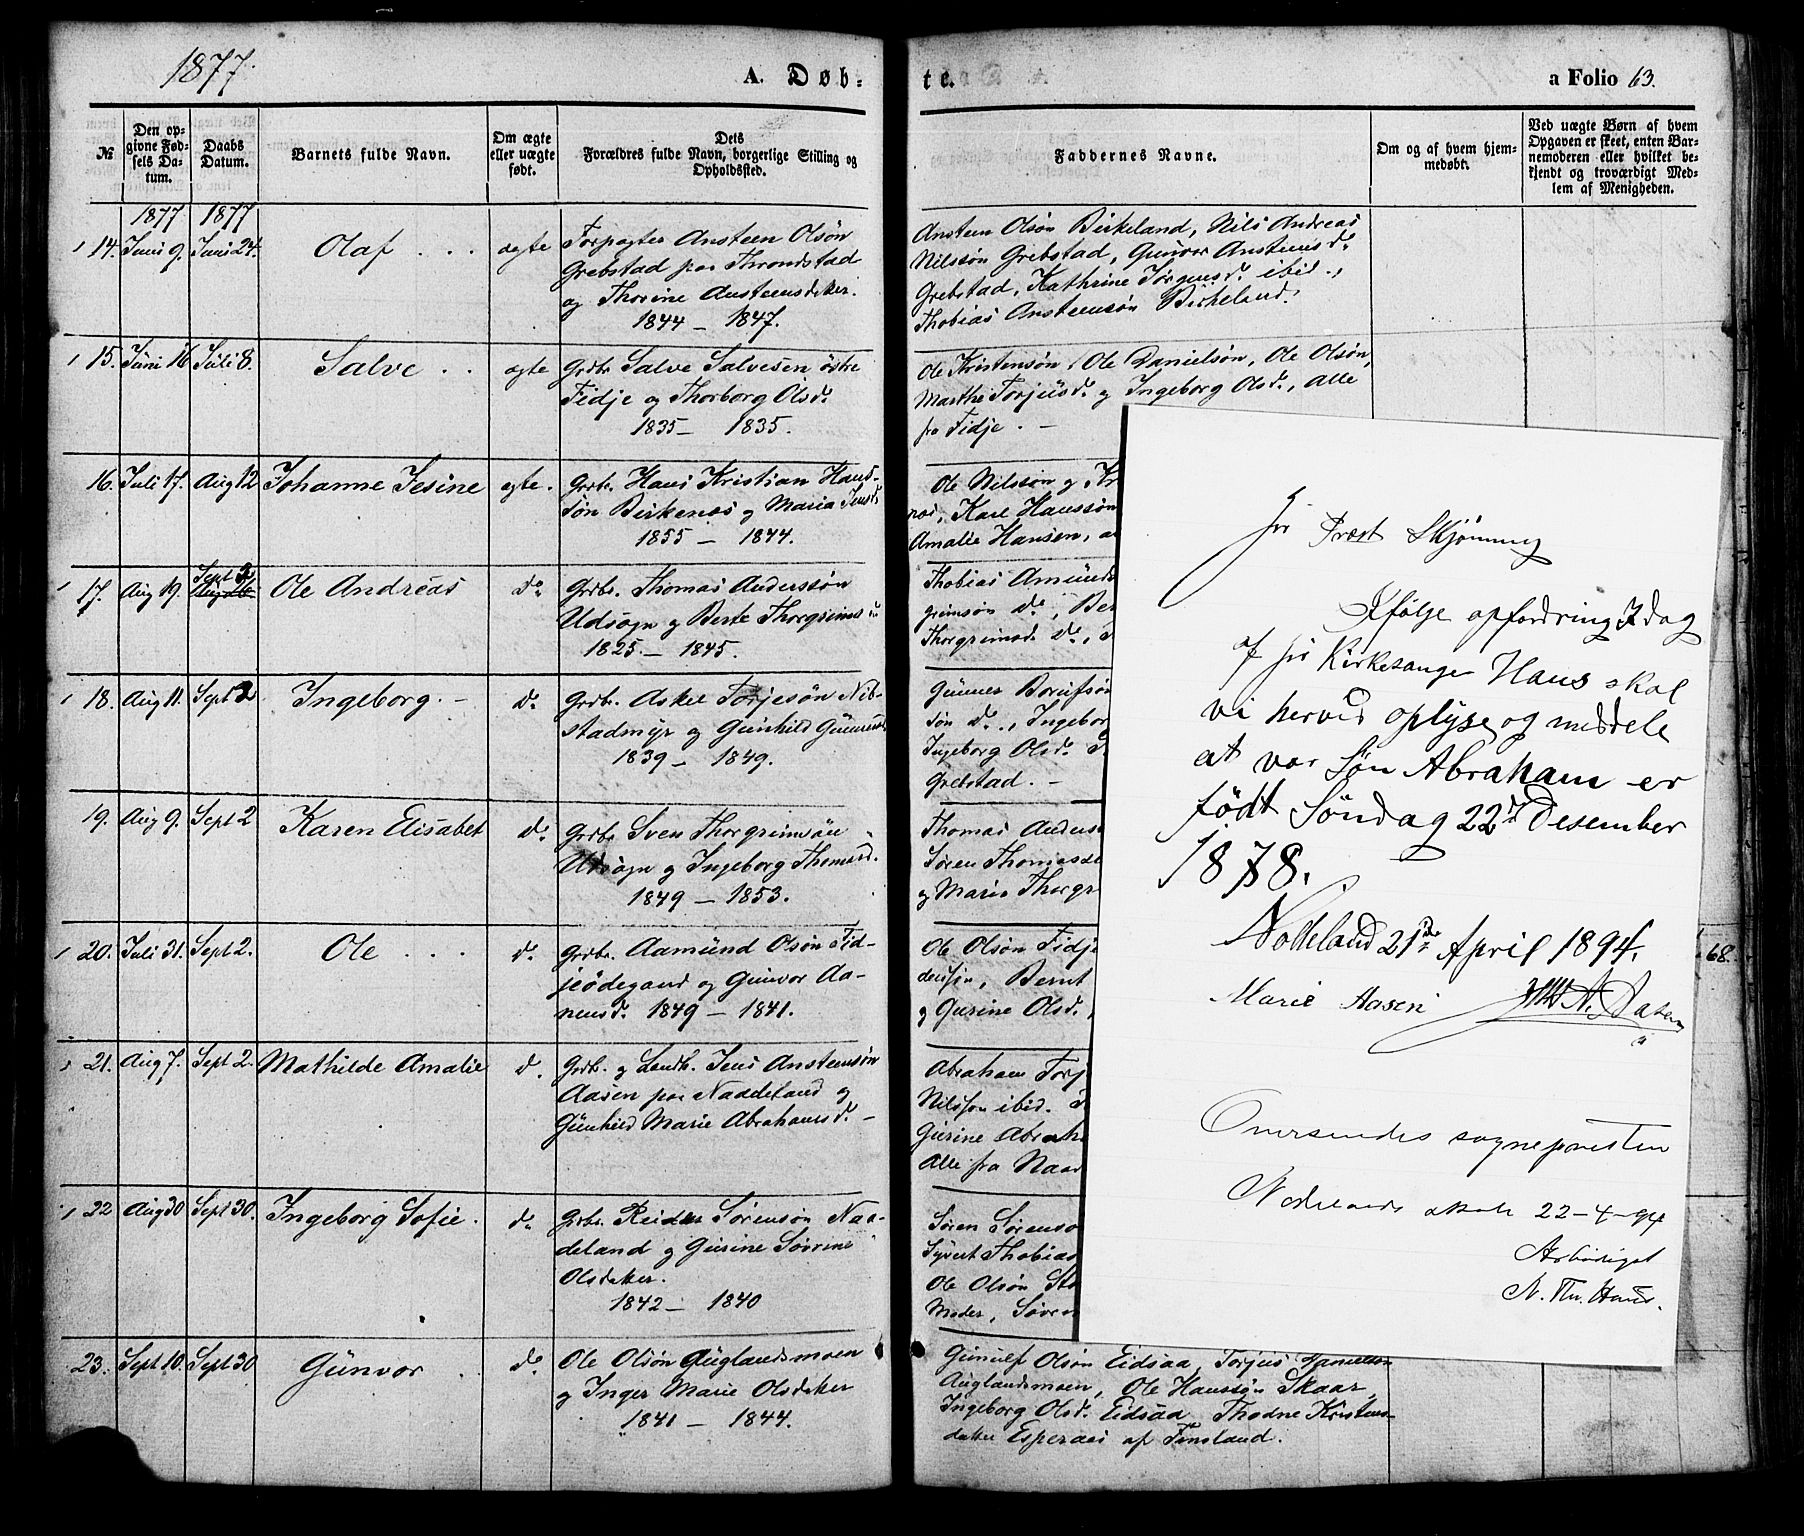 1877.
A. Døb-
№
Den op-
givne Fød-
sels Da-
tum.
Daabs
Datum.
Barnets fulde Navn.
Om ægte
eller uægte
født.
Dets
Forældres fulde Navn, borgerlige Stilling og
Opholdssted.
1877 1877
14. Juni 9. Juni 24. Olaf ægte Forpagter Ansteen Olsøn
Grebstad paa Throndstad
og Thorine Ansteensdatter.
1844 – 1847.
15. Juni 16 Juli 8. Salve ægte Grdbr. Salve Salvesen østre
Fidje og Thorborg Olsd.
1835 – 1835.
16. Juli 17. Aug 12 Johanne Jesine ægte. Grdbr. Hans Kristian Hans-
søn Birkenæs og Maria Jensd.
1855 – 1844.
Sept 2
17. Aug 19. Aug 26 Ole Andreas do Grdbr. Thomas Anderssøn
Udsøgn og Berte Thorgrimsd.
1825. – 1845.
18. Aug 11. Sept 2 Ingeborg. – do Grdbr. Askel Torjesøn Nib-
stadmyr og Gunhild Gunnersd.
1839 – 1849.
19. Aug 9. Sept 2 Karen Elisabet do Grdbr. Sven Thorgrimsøn
Udsøgn og Ingeborg Thomasd.
1849 – 1853.
20. Juli 31. Sept 2. Ole do Grdbr. Aamund Olsøn Fid-
jeødegaard og Gunvor Aa-
nensd. 1849 – 1841.
21. Aug 7. Sept 2. Mathilde Amalie d. Grdbr. og Landh. Jens Ansteensøn
Aasen paa Naadeland og
Gunhild Marie Abrahamsd. –
22 Aug 30 Sept 30. Ingeborg Sofie. do Grdbr. Reider Sørensøn Naa-
deland og Gurine Sovrine
Olsdatter.
1842 – 1840
23. Sept 10. Sept 30 Gunvor do Ole Olsøn Auglandsmoen
og Inger Marie Olsdatter
1841 – 1844.
te.
a Folio 63.
Faddernes Navne.
Om og af hvem hjem-
medøbt.
Ved uægte Børn af hvem
Opgaven er skeet, enten Bar-
nemoderen eller hvilket be-
kjendt og troværdigt Med-
lem af Menigheden.
Ansteen Olsøn Birkeland, Nils Andreas
Nilssøn Grebstad, Gunvor Ansteensd.
Grebstad, Kathrine Jørgensd. ibid.,
Thobias Ansteensøn Birkeland.
Ole Kristensøn, Ole Danielsøn, Ole Olsøn,
Marthe Torjusd. og Ingeborg Olsd., alle
fra Fidje. –
Ole Nilssøn og Kr
næs, Karl Hanssøn
Amalie Hansen, a
Thobias Amunds
grimsøn do, Ber
Thorgrimsd. do,
Gunner Borufsøn
søn do., Ingebor
Ingeborg Olsd.
Grebstad. –
Thomas Anders
Søren Thomasse
og Marie Thorgr
Ole Olsøn Fidje
densjø, Bernt
og Gurine Olsd.,
Abraham Torj
Nilsson ibid.
Gurine Abrah
Alle fra Naad
Søren Sørenso
Syvert Thobias
Ole Olsøn Sta
Moder, Søren
Gunulf Olsøn Eidsaa, Torjus Danielsøn
Auglandsmoen, Ole Hanssøn Skaar,
Ingeborg Olsd. Eidsaa, Thodne Kristens-
datter Espenæs af Finsland.
68.
Hr Præst Skjønning
Ifølge opfordring Idag
af hr Kirkesanger Haus skal
vi herved oplyse og meddele
at vor Søn Abraham er
født Søndag 22de Desember
1878.
Nodeland 21de April 1894.
Marie Aasen J. A. Aasen
Oversendes sognepresten
Nodelands skole 22–4–94
Ærbødigst
N. Th. Haus.